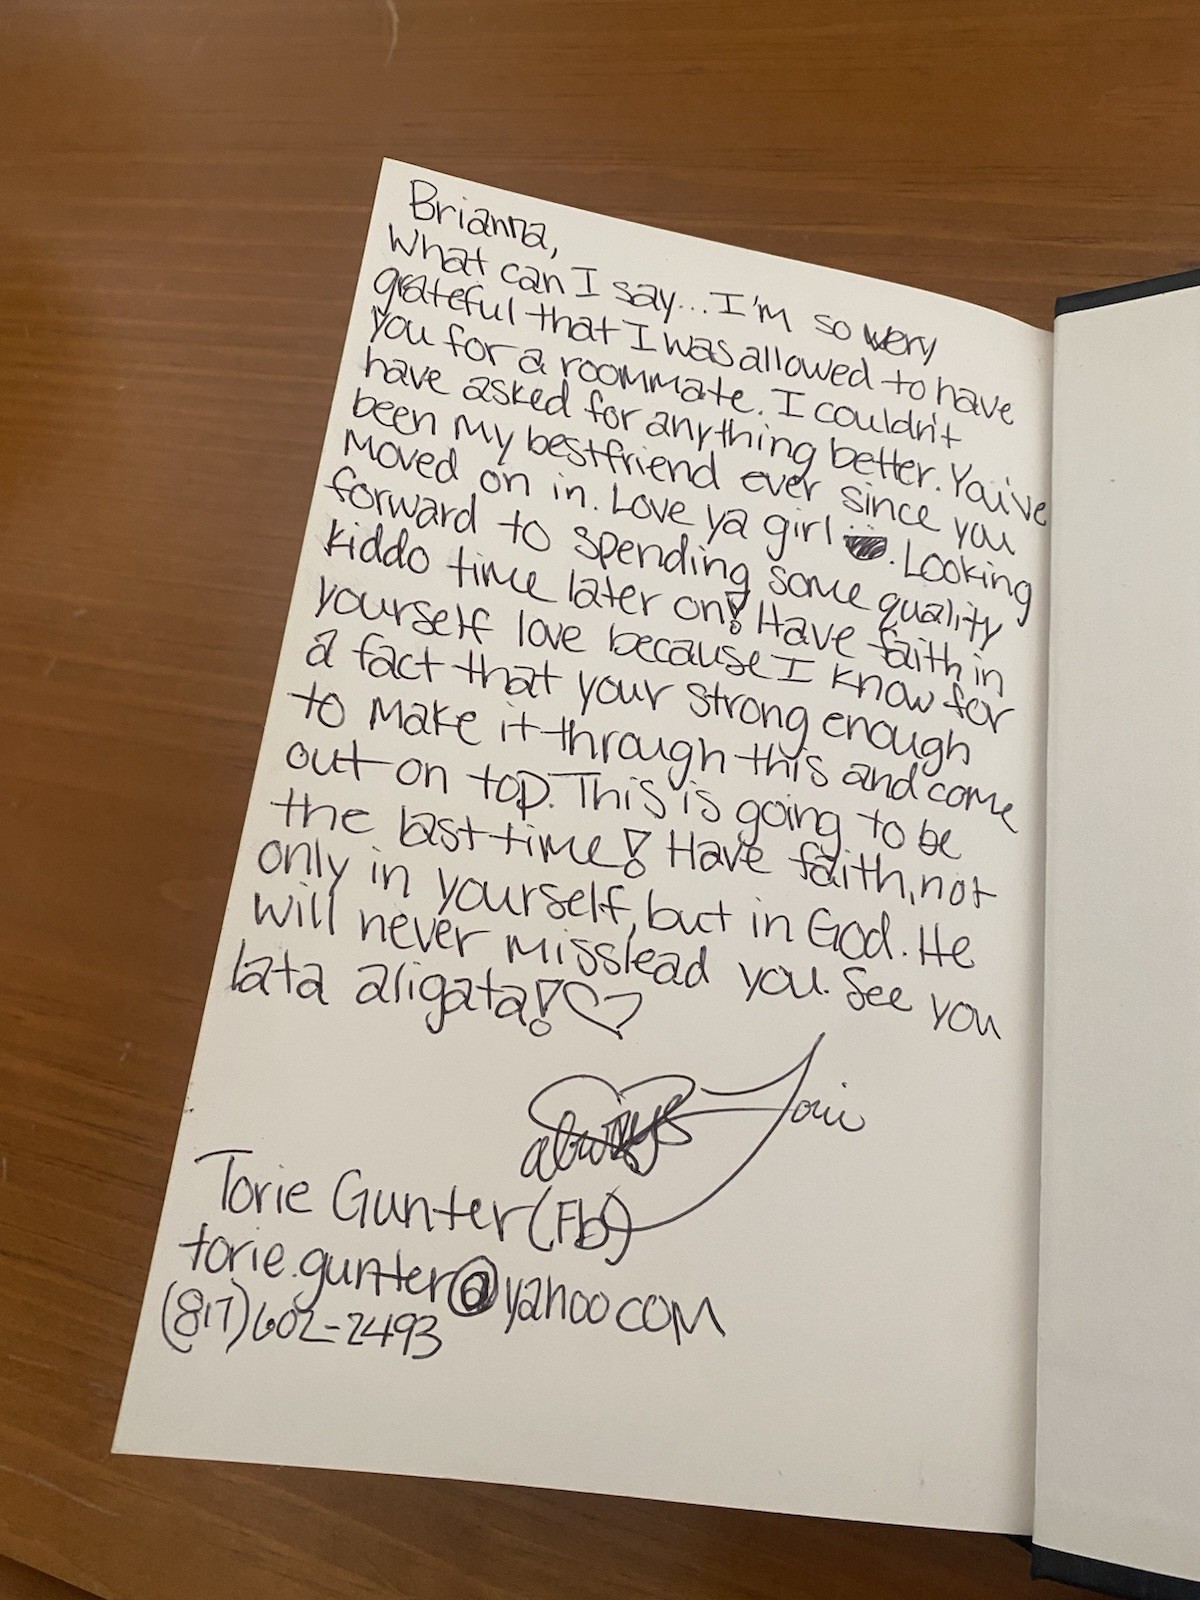 Brianna,
What can I say... I'm so very
grateful that I was allowed to have
you for a roommate. I couldn't
have asked for anything better. You've
been my bestfriend ever since you
moved on in. Love ya girl. Looking
forward to spending some quality
kiddo time later on! Have faith in
yourself love because I know for
a fact that your strong enough
to make it through this and come
out on top. This is going to be
the last time! Have faith, not
only in yourself, but in God. He
will never misslead you. See you
lata aligata! ♡
always Torie
Torie Gunter (Fb)
torie.gunter@yahoo.com
(817) 602-2493